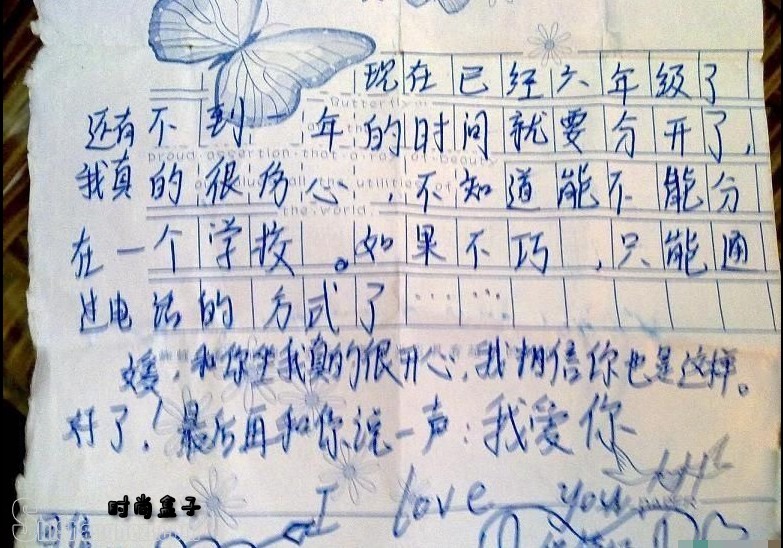 现在已经六年级了
还有不到一年的时间就要分开了,
我真的很伤心,不知道能不能分
在一个学校。如果不巧,只能通
过电话的方式了……
媛,和你坐我真的很开心,我相信你也是这样。
好了!最后再和你说一声:我爱你
I love you
时尚盒子